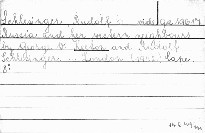 Schlesinger, Rudolf
Russia and her western neighbours
by George W. Keeton and Rudolf
Schlesinger. London 1942: Cape.
8°